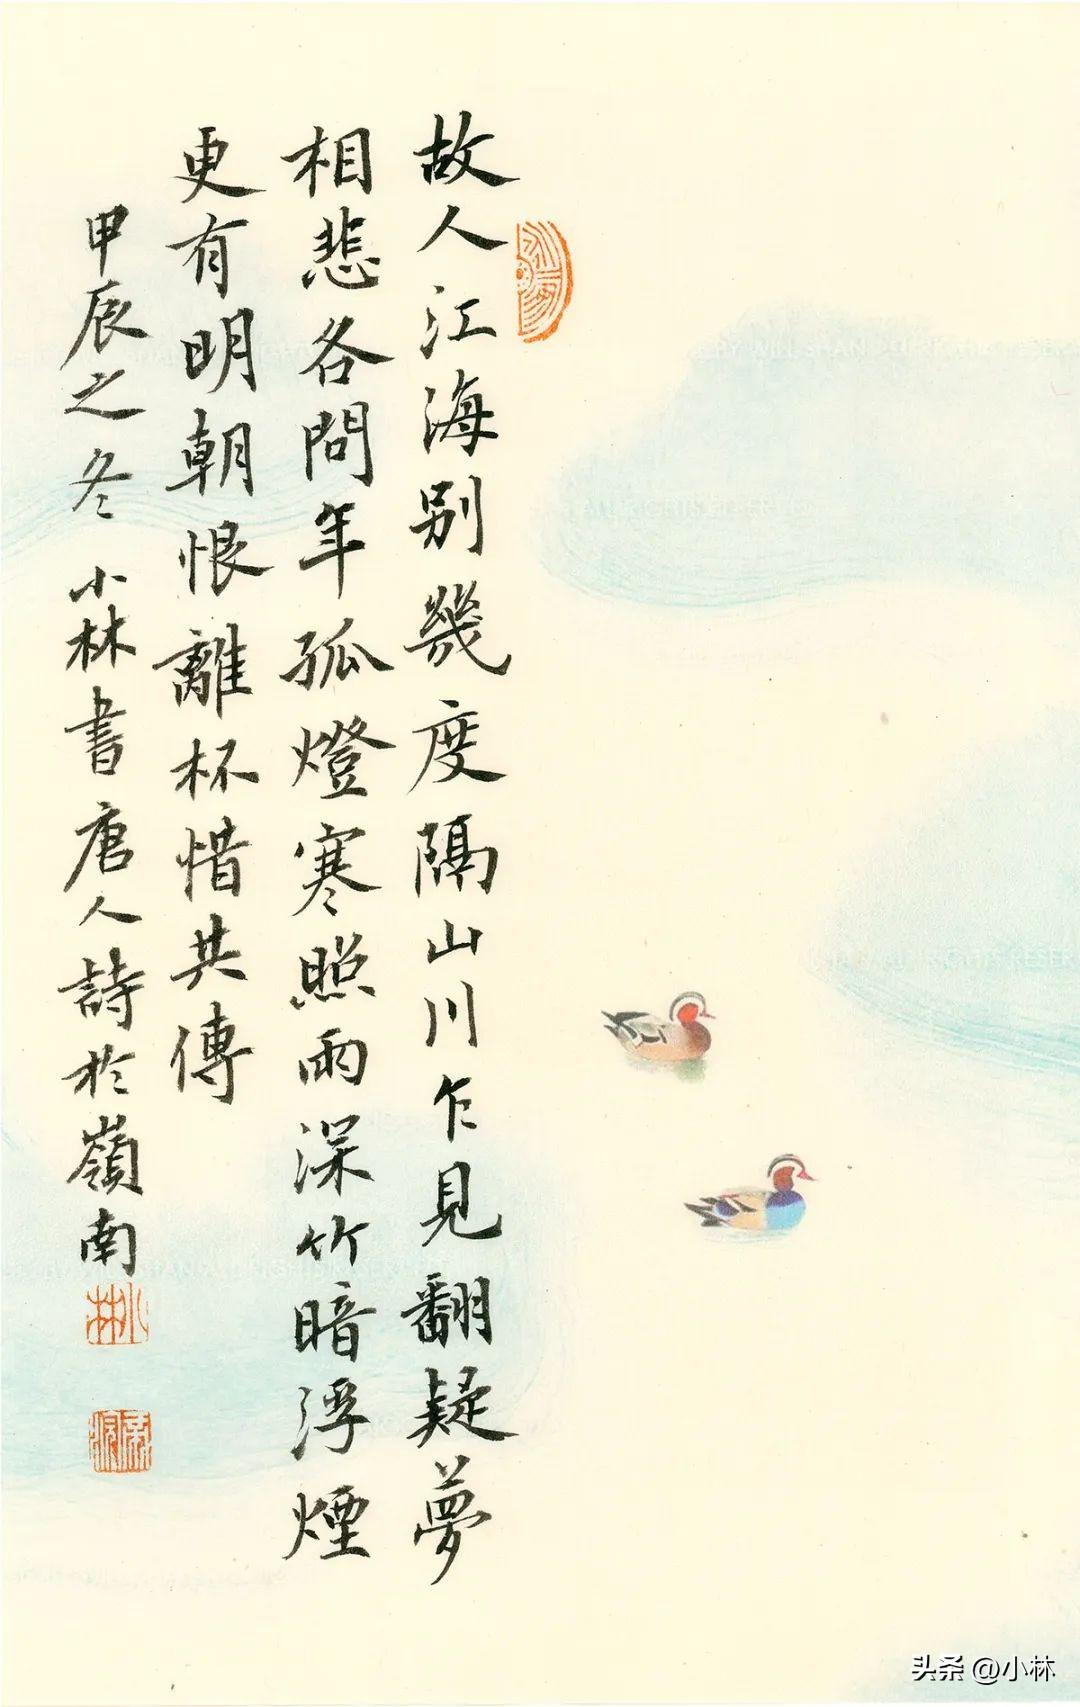 故人江海别幾度隔山川乍見翻疑夢
相悲各問年孤燈寒照雨深竹暗浮煙
更有明朝恨離杯惜共傳
甲辰之冬 小林書唐人詩於嶺南
小林
头条 @小林